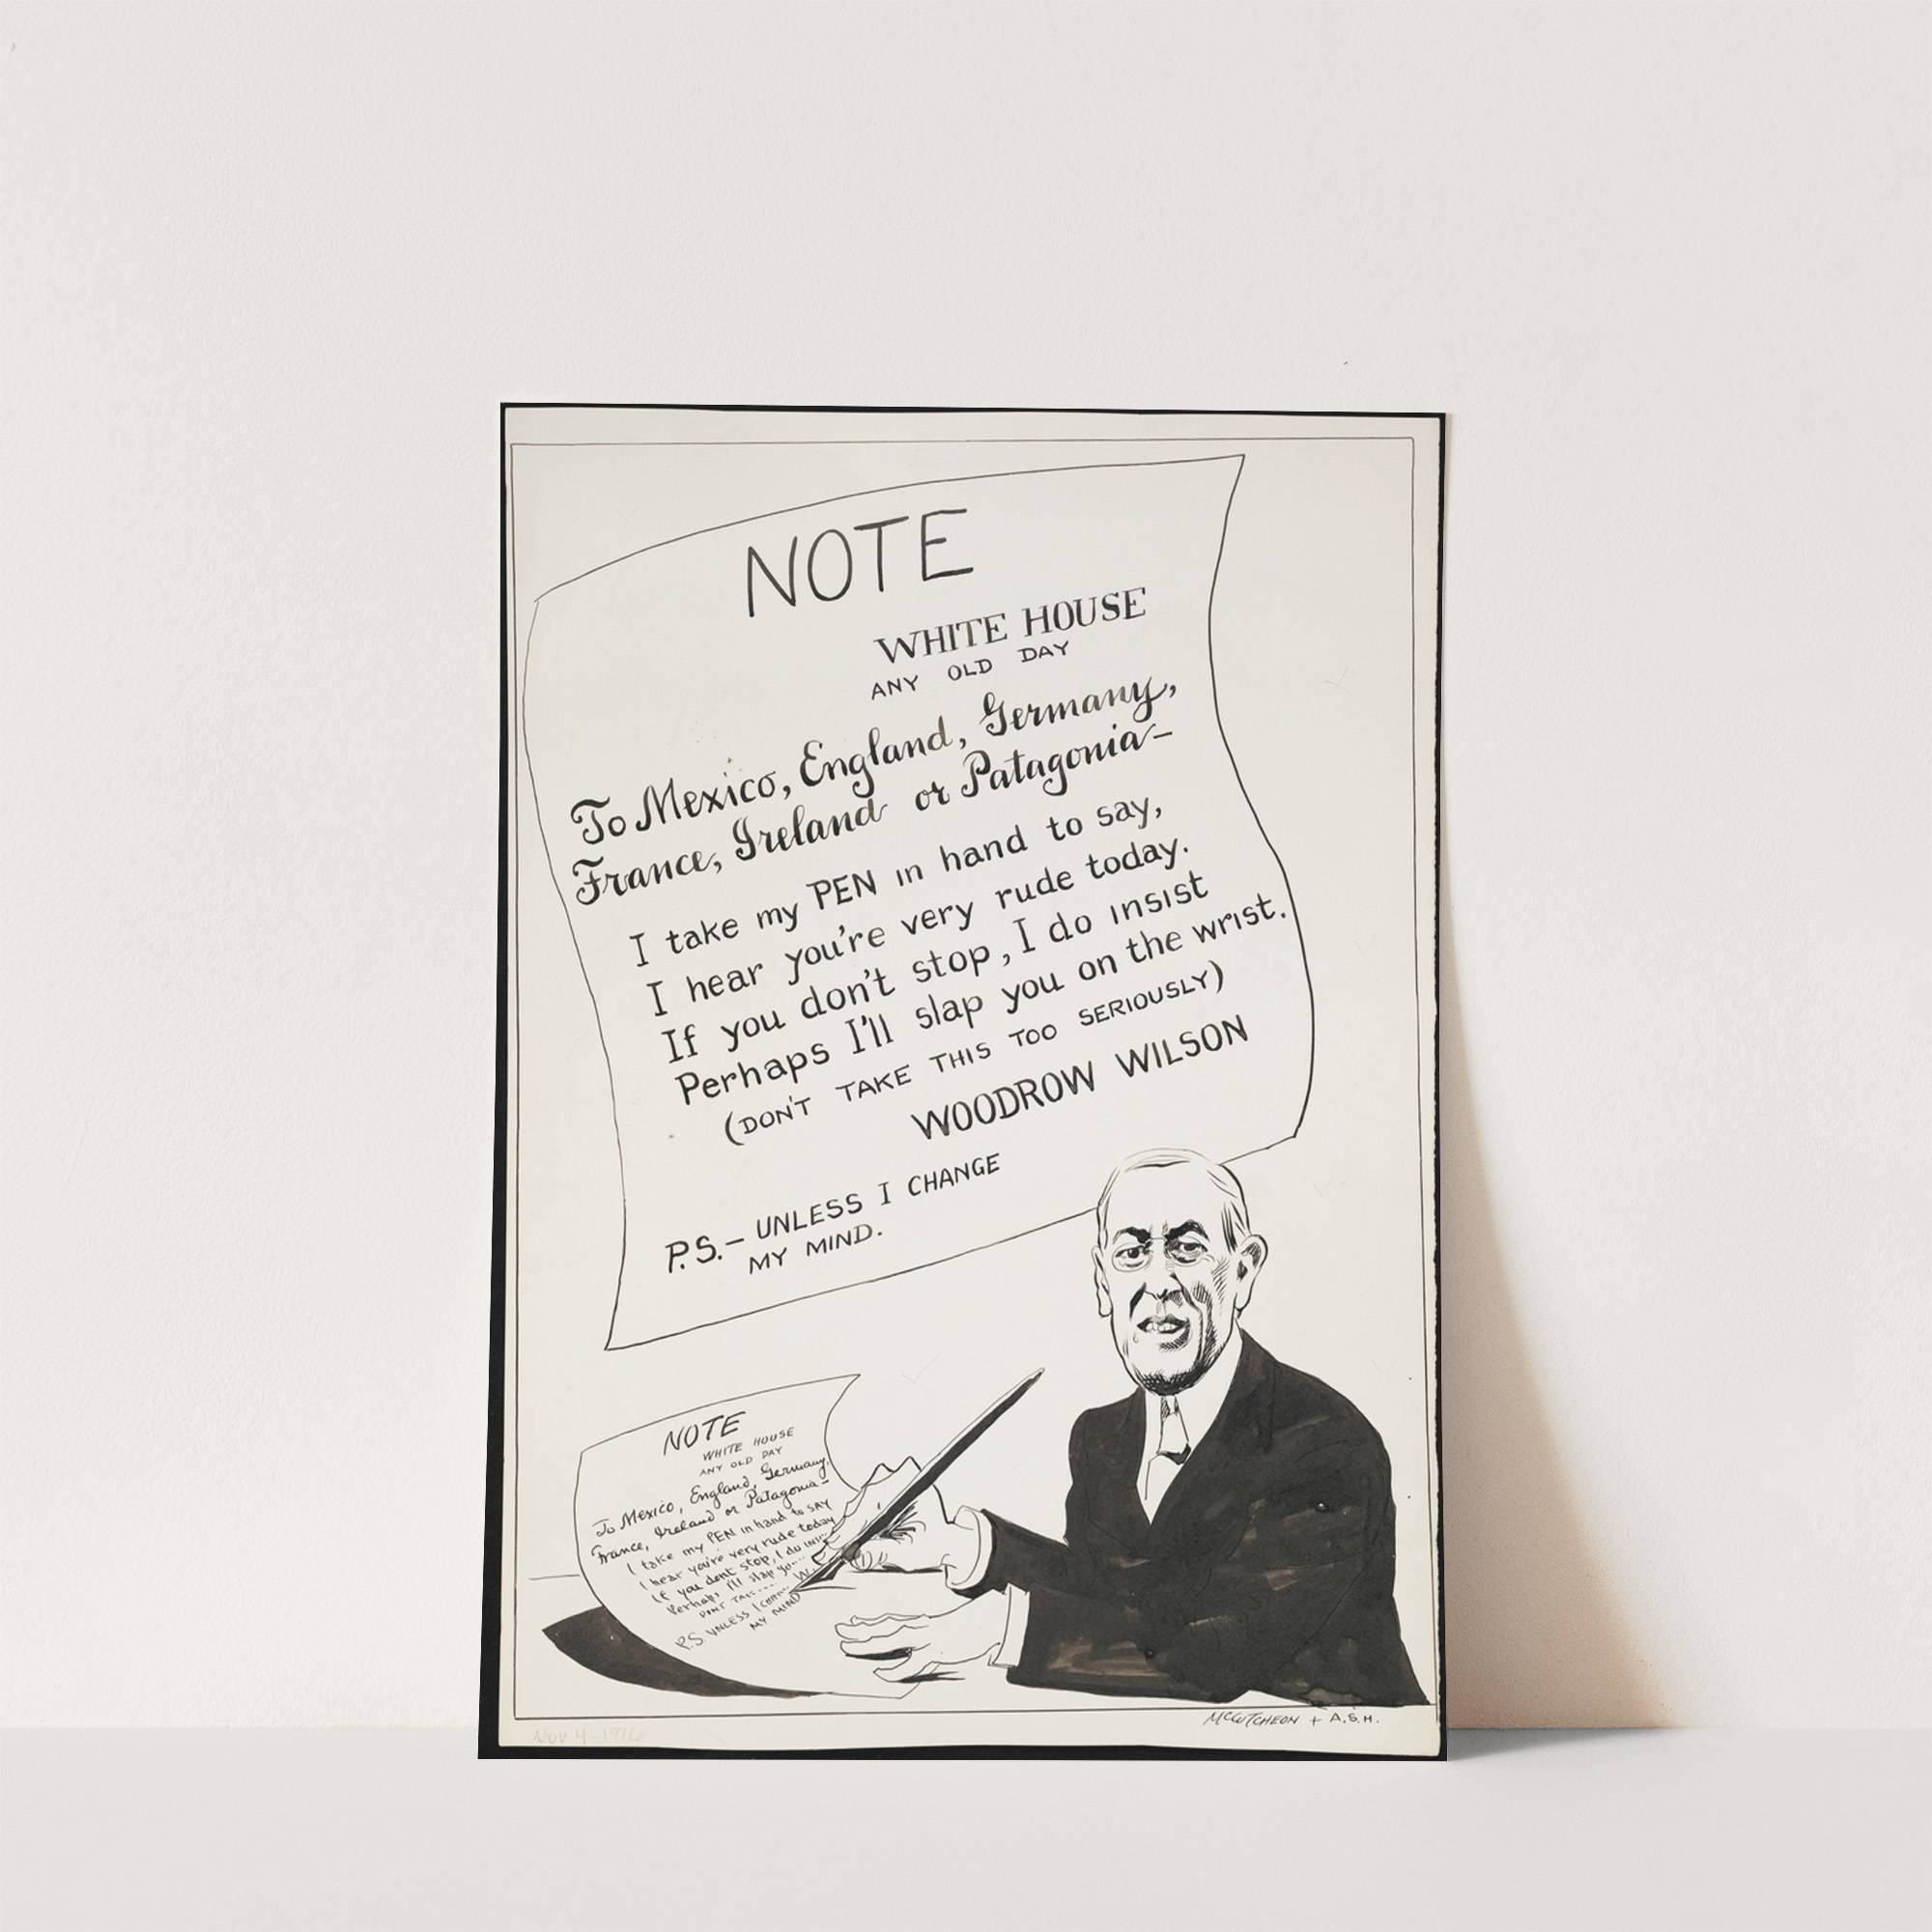 NOTE
WHITE HOUSE
ANY OLD DAY
To Mexico, England, Germany,
France, Ireland or Patagonia—
I take my PEN in hand to say,
I hear you're very rude today.
If you don't stop, I do insist
Perhaps I'll slap you on the wrist.
(DON'T TAKE THIS TOO SERIOUSLY)
WOODROW WILSON
P.S.— UNLESS I CHANGE
MY MIND.
NOTE
WHITE HOUSE
ANY OLD DAY
To Mexico, England, Germany,
France, Ireland or Patagonia—
I take my PEN in hand to SAY
I hear you're very rude today
If you dont stop, I do
Perhaps I'll slap
DON'T
P.S. UNLESS I
MY MIND
McCUTCHEON + A.S.H.
Nov 4-1916